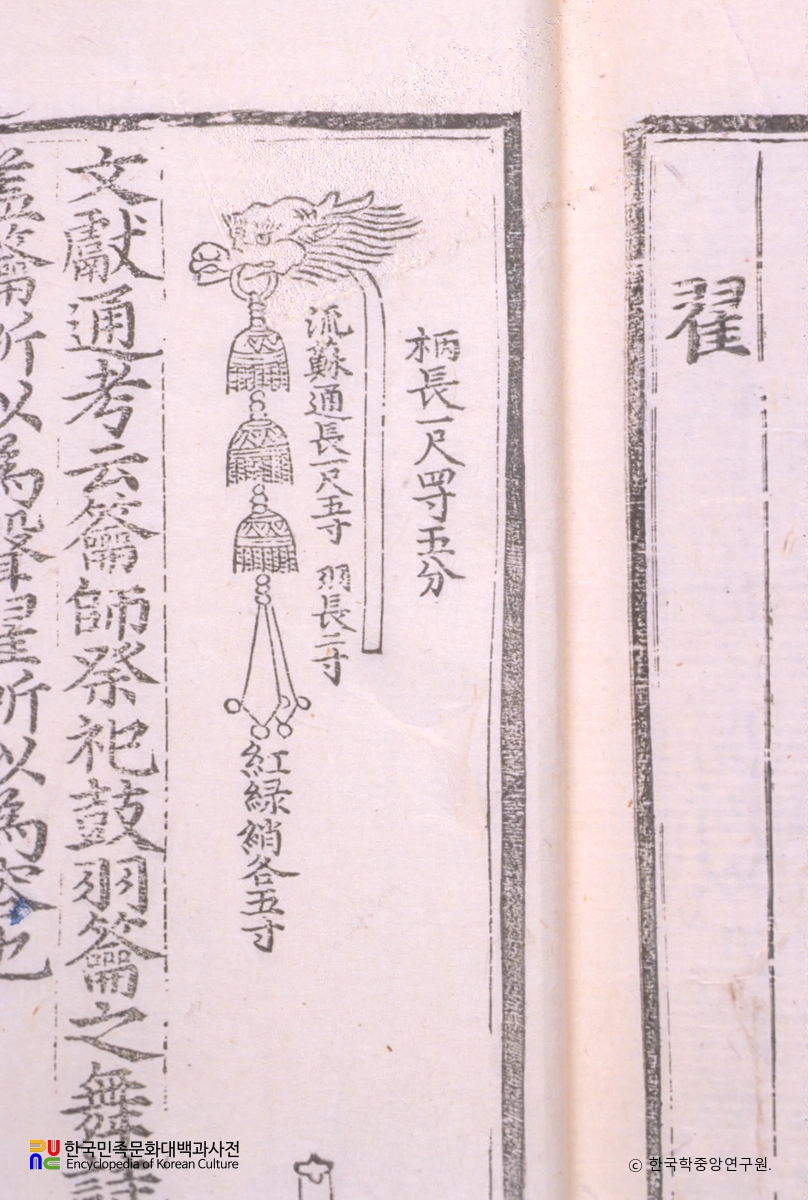 翟
柄長一尺四寸五分
流蘇通長一尺五寸 羽長二寸
紅綠綃各五寸
文獻通考云籥師祭祀鼓羽籥之舞詩
盖籥所以為聲翟所以為容也
한국민족문화대백과사전
Encyclopedia of Korean Culture
ⓒ 한국학중앙연구원.